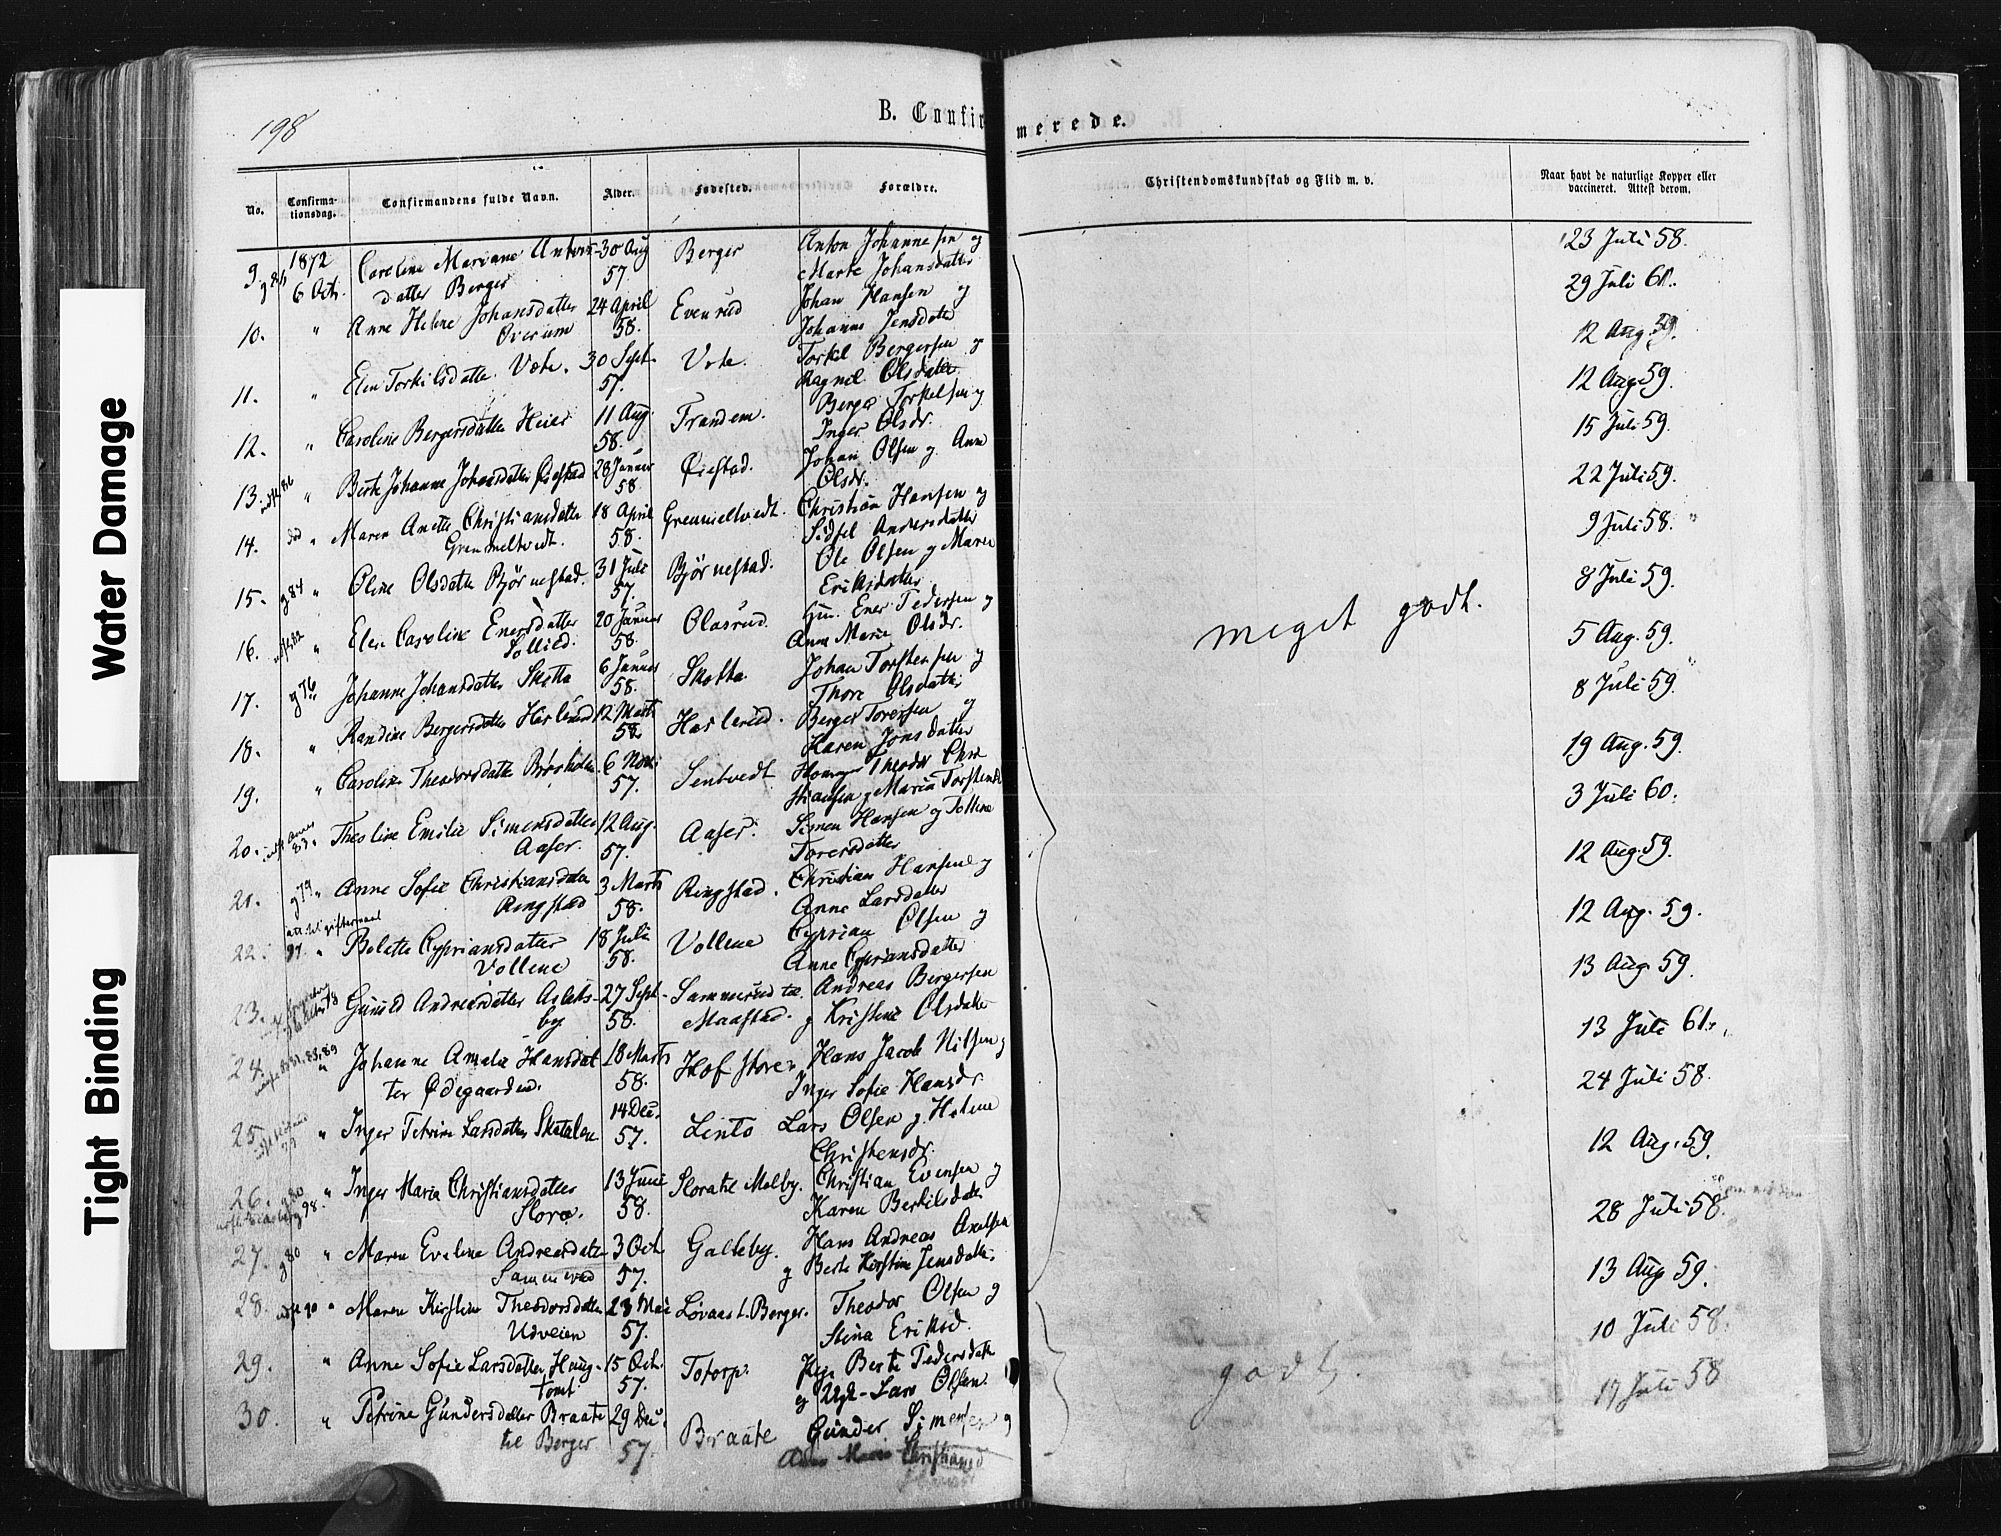 198
B. Confirmerede.
No.
Confirmationsdag.
Confirmandens fulde Navn.
Alder.
Fødested.
Forældre.
Christendomskundskab og Flid m. v.
Naar havt de naturlige Kopper eller vaccineret. Attest derom.
1872
9. 6 Oct. Caroline Mariane Anton- 30 Aug Berger Anton Johannesen og 23 Juli 58.
datter Berger 57. Marte Johansdatter
10. " Anne Helene Johansdatter 24 April Evenrud Johan Hansen og 29 Juli 61.
58. Johanne Jensdatter
11. " Elen Torkilsdatter 30 Sept. Torkil Bergersen og 12 Aug. 59.
57. Ragnil Olsdatter
12. " Caroline Bergersdatter Heier 11 Aug. Trandem. Berger Torkelsen og 12 Aug. 59.
58. Inger Olsdr.
13. " Berte Johanne Johansdatter Øiestad 28 Januar Øiestad. Johan Olsen og Anne 15 Juli 59.
58. Olsdr.
14. " Maren Anette Christiansdatter 18 April Gremmeltvedt. Christian Hansen og 22 Juli 59.
Gremmeltvedt. 58. Sidsel Andersdatter
15. g 84 " Oline Olsdatter Bjørnestad. 31 Juli Bjørnestad. Ole Olsen og Maren 9 Juli 58.
57. Eriksdatter
16. " Elen Caroline Enersdatter 20 Januar Olasrud. Ener Pedersen og 8 Juli 59.
Sollid. 58. Anne Marie Olsdr.
17. g 76 " Johanne Johansdatter Skotta 6 Januar Skotta Johan Torstensen og 5 Aug. 59.
58. Thore Olsdatter
18. " Randine Bergersdatter Haslerud 12 Marts Haslerud. Berger Toresen og 8 Juli 59.
58. Karen Jonsdatter
19. " Caroline Theodorsdatter 6 Nov. Sentvedt Theodor Chri- 19 Aug. 59.
57. stiansen og Maria
20. 83. " Theoline Emilie Simensdatter 12 Aug. Aaser. Simen Hansen og 3 Juli 60.
Aaser. 57. Toresdatter
21. g 79 " Anne Sofie Christiansdatter 3 Marts Ringstad. Christian Hansen og 12 Aug. 59.
Ringstad 58. Anne Larsdatter
22. 97. " Bolette Cypriansdatter 18 Juli Vollene Cyprian Olsen og 12 Aug. 59.
Vollene 58. Anne Cypriansdatter
23. Gunild Andreasdatter Aslaks- 27 Sept. Sammerud til Andreas Bergersen 13 Aug. 59.
by 58. Maastad. og Kristine Olsdatter
24. " Johanne Amalia Hansdat- 18 Marts Hof store Hans Jacob Nilsen og 13 Juli 61.
ter Ødegaarden. 58. Inger Sofie Hansdr.
25. " Inger Petrine Larsdatter Skatalen 14 Dec. Linto Lars Olsen og Helene 24 Juli 58.
57. Christensdr.
26. g 80 " Inger Maria Christiansdatter 13 Juni Slora til Melby. Christian Evensen og 12 Aug. 59.
98. Slora. 58. Karen Bertilsdatter
27. g 80 " Maren Eveline Andreasdatter 3 Oct. Galteby. Hans Andreas Axelsen 28 Juli 58.
57. og Berte Kirstine Jensdatter
28. " Maren Kirstine Theodorsdatter 28 Mai Lovaas u. Berger. Theodor Olsen og 13 Aug. 59.
Udveien 57. Stina Eriksd.
29. " Anne Sofie Larsdatter Haug- 15 Oct. Totorp. Berte Pedersdatter 10 Juli 58.
tomt 57. og Lars Olsen
30. " Petrine Gundersdatter Braate 29 Dec. Braate Gunder Simensen og 17 Juli 58
til Berger 57. Maren
meget godt.
godt.
Water Damage
Tight Binding